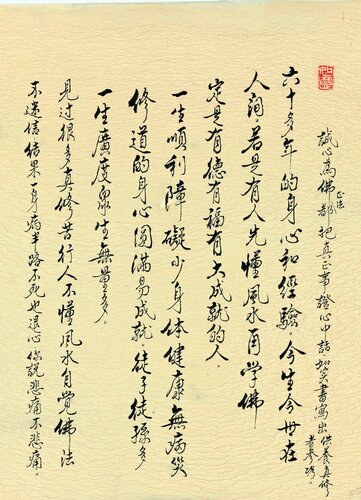 誠心為佛都把真正事證心中話如实書寫出供養真修
正法
者參改。
六十多年的身心和經驗。今生今世在
人间。若是有人先懂風水再学佛
定是有德有福有大成就的人。
一生順利障礙少身体健康無病災
修道的身心圆满易成就。徒子徒孫多
一生廣度眾生無量多。
見过很多真修苦行人不懂風水自覺佛法
不迷信結果一身病半路不死也退心你說悲痛不悲痛。